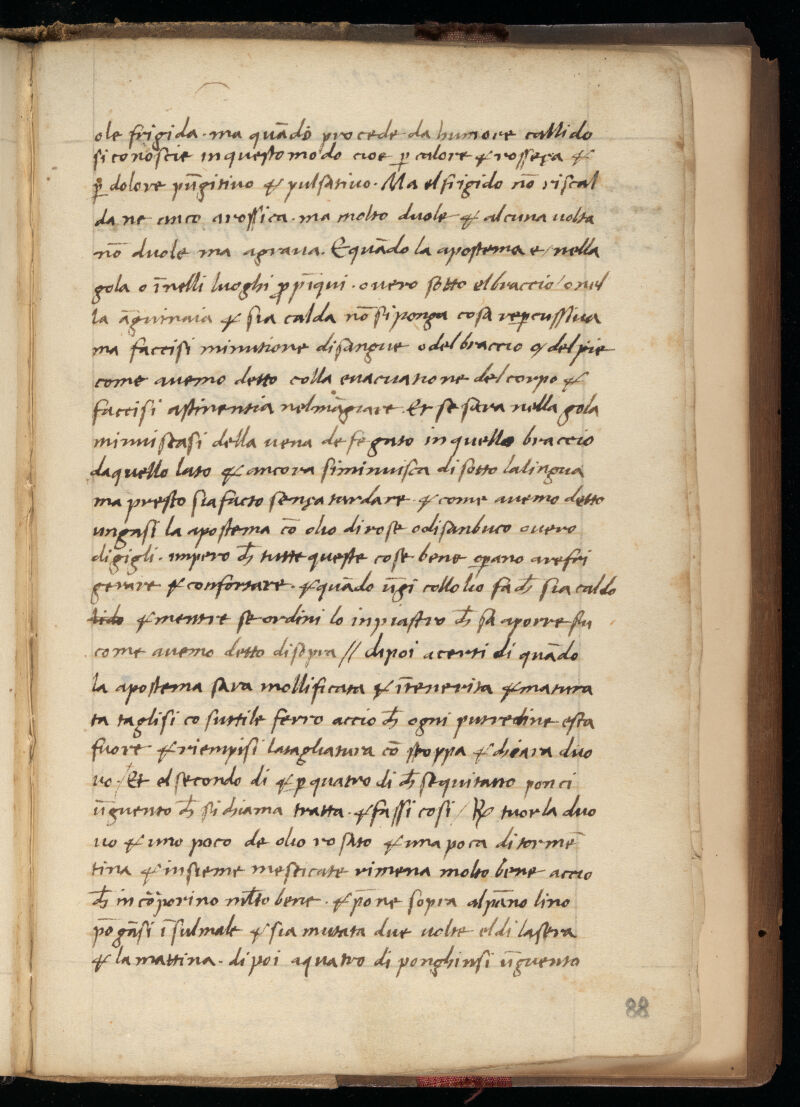 ole frigida · ma quādo procede da humore callido
si conoscie in questo modo cioe ꝑ calore & rosseça &
ꝑ dolore pūgitivo & pulsativo · Ma el frigido nō riscal
da ne anco arossica · ma molto duole & alcuna volta
nō duole ma agrava · E quādo la apostema e / nella
gola o ī nelli luoghi ꝓpīqui · overo sotto el braccio / o nel
la āguinaia & sia calda nō si ponga cosa repercussiva
ma faccisi minutione di sangue o del braccio o del pie
come avemo detto colla evacuatione del corpo &
faccisi astinentia nel māgiare · Et se sara nella gola
minuiscasi della vena de fegato in quello braccio
da quello lato & ancora siminuisca di sotto la lingua
ma presto sia facto sença tardare · & come avemo detto
ungasi la apostema cō olio di rose o di sanbuco overo
di gigli · impero cħ tutte queste cose bene oꝑano a refri
gerare & confortare · & quādo ūgi collolio fa cħ sia caldo
& mentre se ordini lo inpiastro cħ sa a porre su
come avemo detto di sopra // dipoi acerti di quādo
la apostema sara mollificata & ītenerita & matura
ta taglisi co suttile ferro accio cħ ogni putredine esca
fuore & riempisi la tagliatura cō stoppa & chiara duo
vo / Et el secondo di & ꝑ quatro di cħ sequitano ponci
ūguento cħ si chiama tratta · & fassi cosi / ℞ tuorla duo
vo & uno poco de olio rosato & una poca di tormē
tina & insieme mesticate rimena molto bene accio
cħ incorporino mlto bene · & pōne sopra al pāno lino
pōgāsi ī sul male & sia mutata due volte el di la sera
& la mattina · dipoi a quatro di ponghinsi ūguento
88